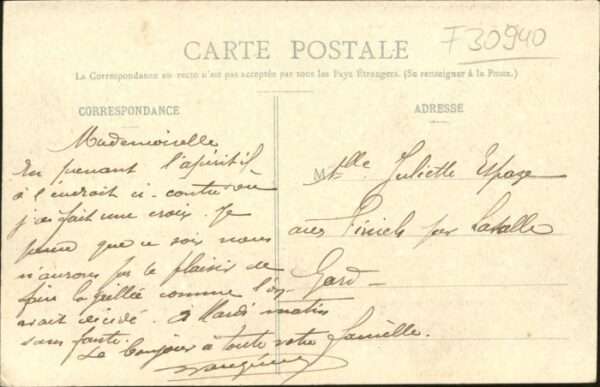 F30940
CARTE POSTALE
La Correspondance au recto n'est pas acceptée par tous les Pays Étrangers. (Se renseigner à la Poste.)
CORRESPONDANCE
Mademoiselle
En prenant l'apéritif
à l'endroit ci-contre où
j'ai fait une croix. Je
pense que ce soir nous
n'aurons pas le plaisir de
faire la veillée comme l'on
avait décidé. A Mardi matin
sans faute.
Le bonjour à toute votre famille.
ADRESSE
Mlle Juliette Espaze
aux Piniels par Lasalle
Gard